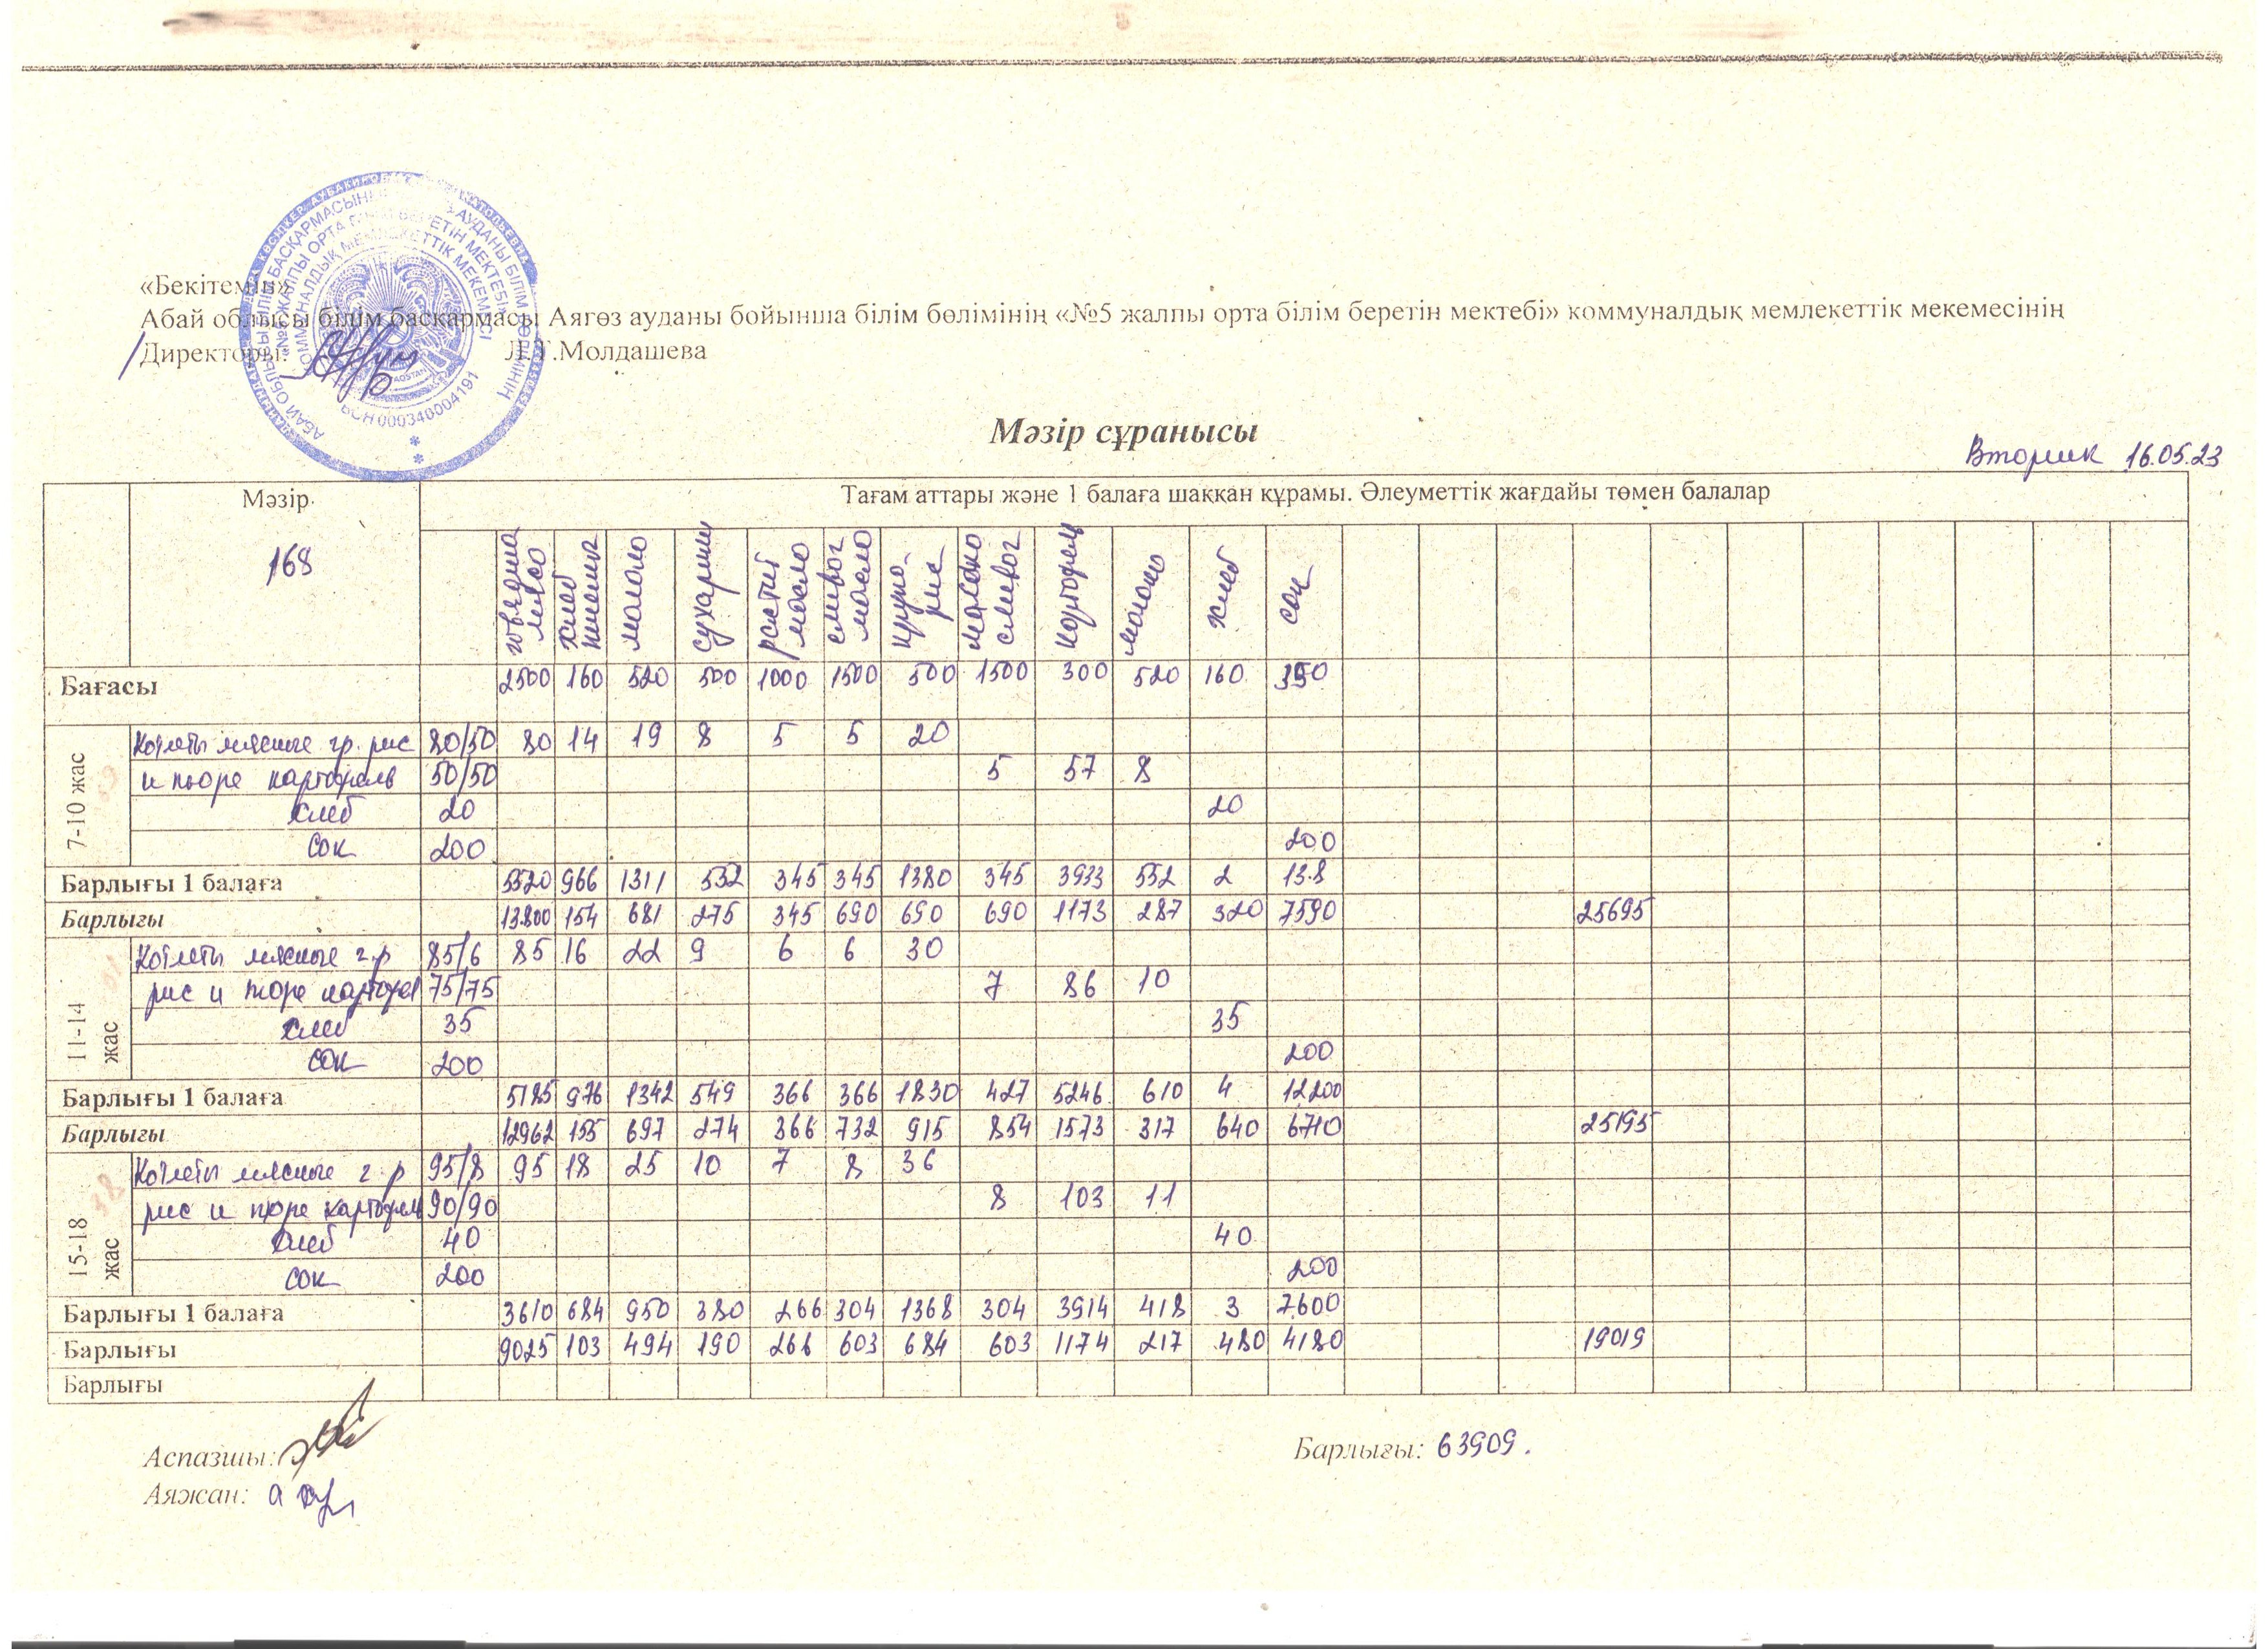 «Бекітемін»
Абай облысы білім басқармасы Аягөз ауданы бойынша білім бөлімінің «№5 жалпы орта білім беретін мектебі» коммуналдық мемлекеттік мекемесінің
Директоры: Л.Т.Молдашева
БСН 000340004191
Мәзір сұранысы
Вторник 16.05.23
Мәзір Тағам аттары және 1 балаға шаққан құрамы. Әлеуметтік жағдайы төмен балалар
168 говядина мясо хлеб пшенич молоко сухарики растит масло сливоч масло крупа-рис масло сливоч картофель молоко хлеб сок
Бағасы 2500 160 520 500 1000 1500 500 1500 300 520 160 350
7-10 жас
Котлеты мясные гр. рис 80/50 80 14 19 8 5 5 20
и пюре картофель 50/50 5 57 8
хлеб 20 20
сок 200 200
Барлығы 1 балаға 5520 966 1311 552 345 345 1380 345 3933 552 2 13.8
Барлығы 13.800 154 681 275 345 690 690 690 1173 287 320 7590 25695
11-14 жас
Котлеты мясные г.р 85/6 85 16 22 9 6 6 30
рис и пюре картофел 75/75 7 86 10
хлеб 35 35
сок 200 200
Барлығы 1 балаға 5185 976 1342 549 366 366 1830 427 5246 610 4 12200
Барлығы 12962 155 697 274 366 732 915 854 1573 317 640 6710 25195
15-18 жас
Котлеты мясные г.р 95/8 95 18 25 10 7 8 36
рис и пюре картофель 90/90 8 103 11
хлеб 40 40
сок 200 200
Барлығы 1 балаға 3610 684 950 380 266 304 1368 304 3914 418 3 7.600
Барлығы 9025 103 494 190 266 603 684 603 1174 217 480 4180 19019
Барлығы
Аспазшы:
Барлығы: 63909.
Аяжан: